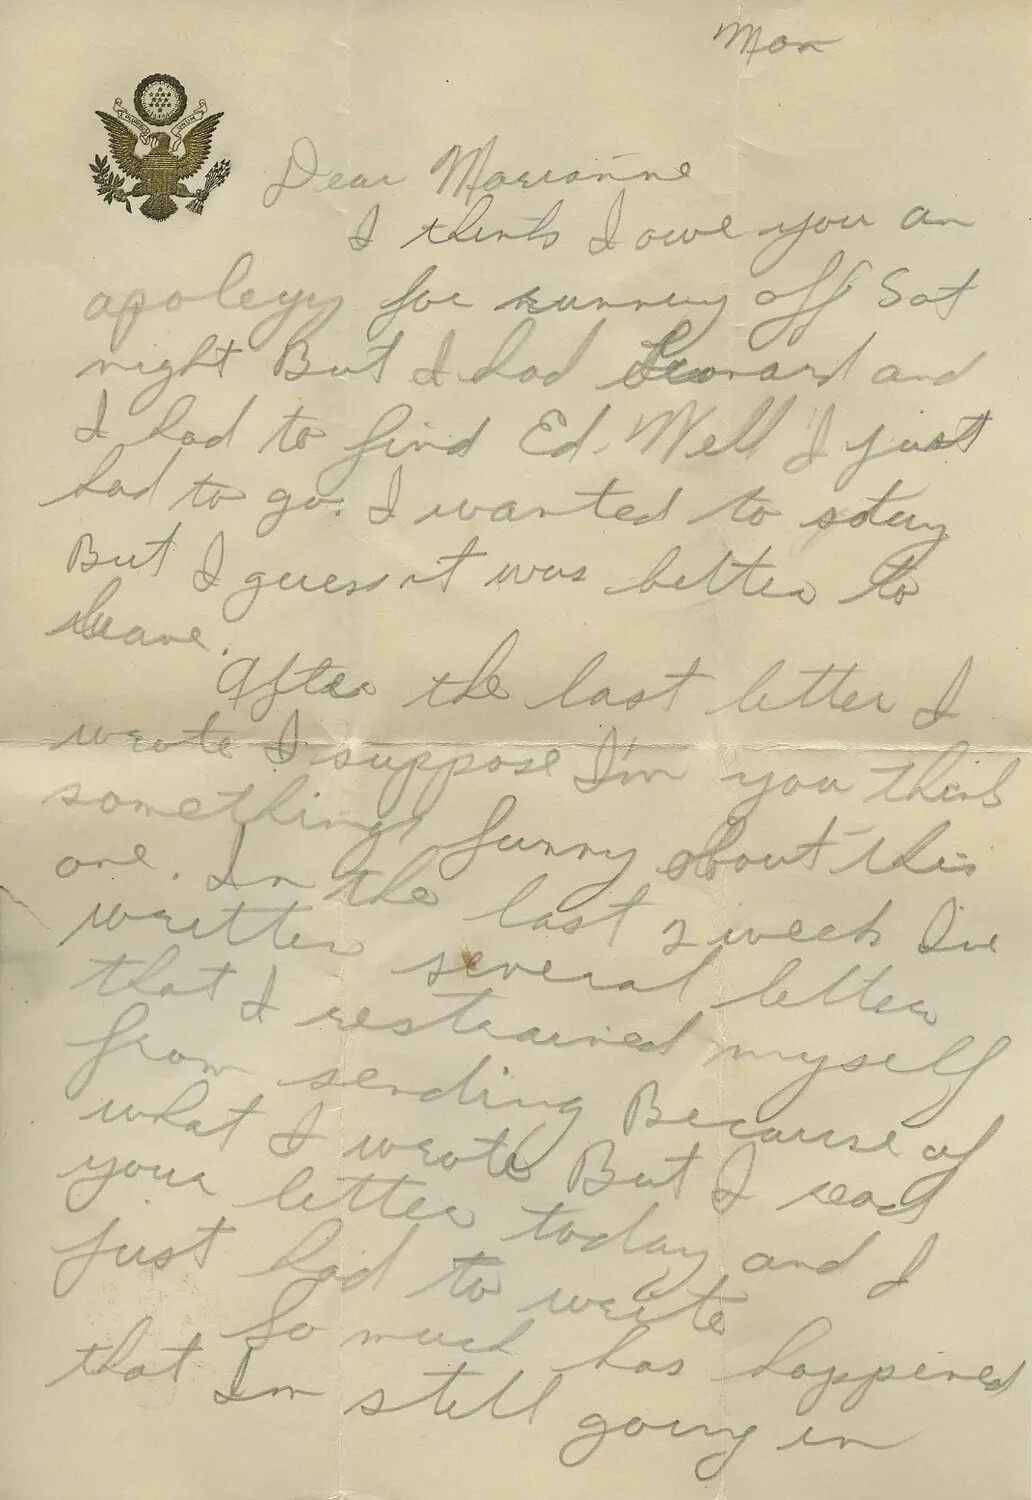 Mon
E PLURIBUS UNUM
Dear Marianne
I think I owe you an
apology for running off Sat
night But I had Leonard and
I had to find Ed. Well I just
had to go. I wanted to stay
But I guess it was better to
leave.
After the last letter I
wrote I suppose I'm you think
something funny about this
one. In the last 2 week I've
written several letter
that I restrained myself
from sending Because of
what I wrote But I read
your letter today and I
just had to write
So much has happened
that I'm still going in